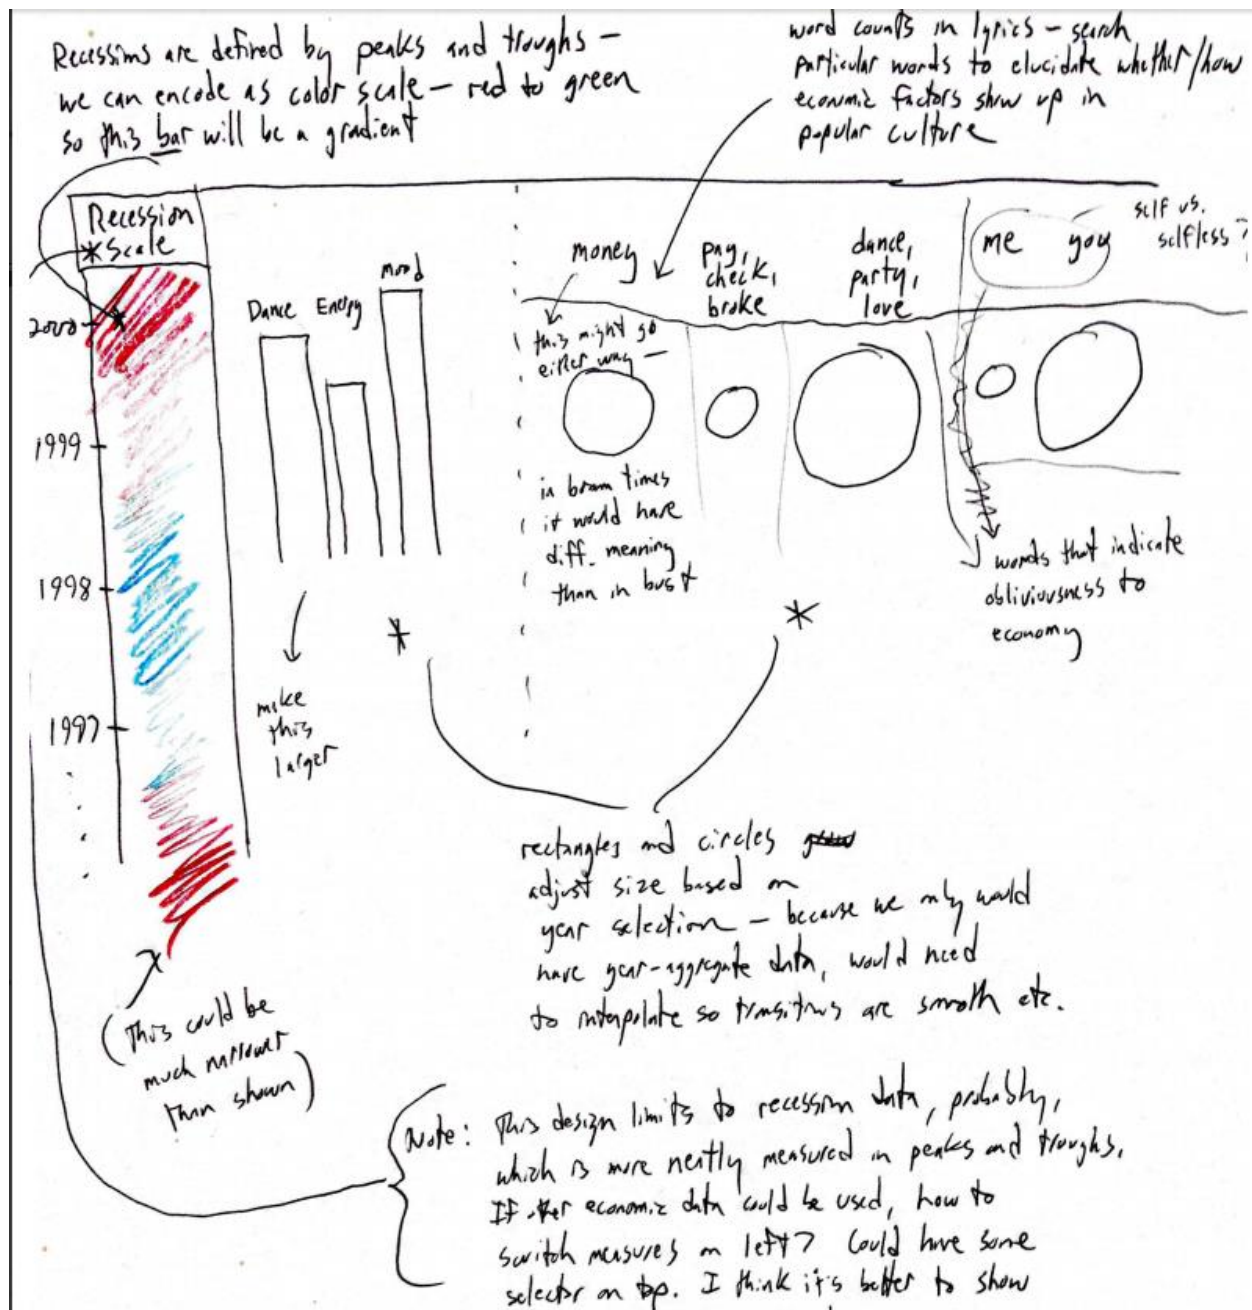 Recessions are defined by peaks and troughs -
we can encode as color scale - red to green
so this bar will be a gradient
word counts in lyrics - search
particular words to elucidate whether/how
economic factors show up in
popular culture
Recession
*Scale
2000
1999
1998
1997
Dance Energy mood
make
this
larger
money
this might go
either way -
in boom times
it would have
diff. meaning
than in bust
pay,
check,
broke
dance,
party,
love
me you
self vs.
selfless
words that indicate
obliviousness to
economy
rectangles and circles
adjust size based on
year selection - because we only would
have year-aggregate data, would need
to interpolate so transitions are smooth etc.
(This could be
much narrower
than shown)
Note: This design limits to recession data, probably,
which is more neatly measured in peaks and troughs.
If other economic data could be used, how to
switch measures on left? Could have some
selector on top. I think it's better to show